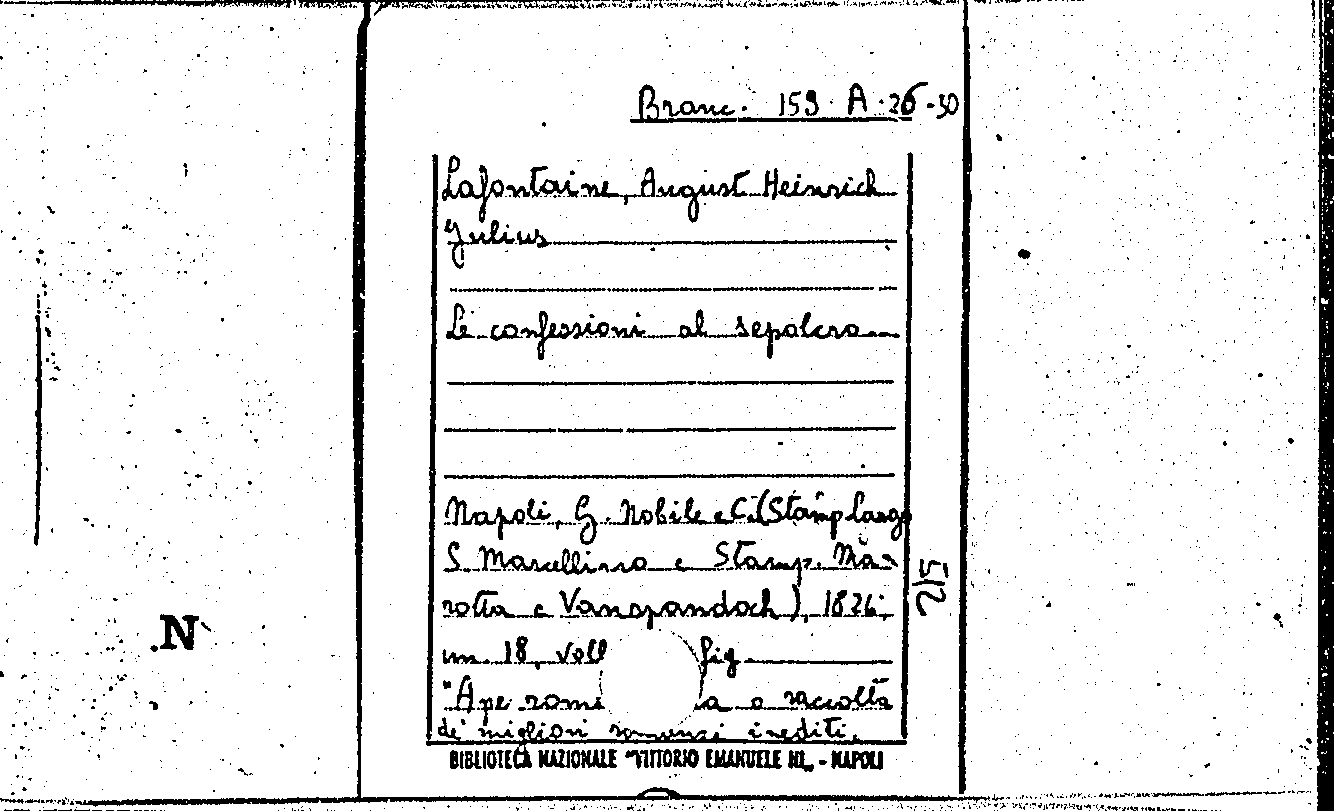 Branc. 159. A. 26-30
Lafontaine, August Heinrich
Julius
Le confessioni al sepolcro
Napoli, G. Nobile e C. (Stamp. Largo
S. Marcellino e Stamp. Ma-
rotta e Vanspandoch), 1826;
in. 18, voll fig
"Ape roma a o raccolta
de' migliori romanzi inediti.
BIBLIOTECA NAZIONALE "VITTORIO EMANUELE III„ - NAPOLI
.N